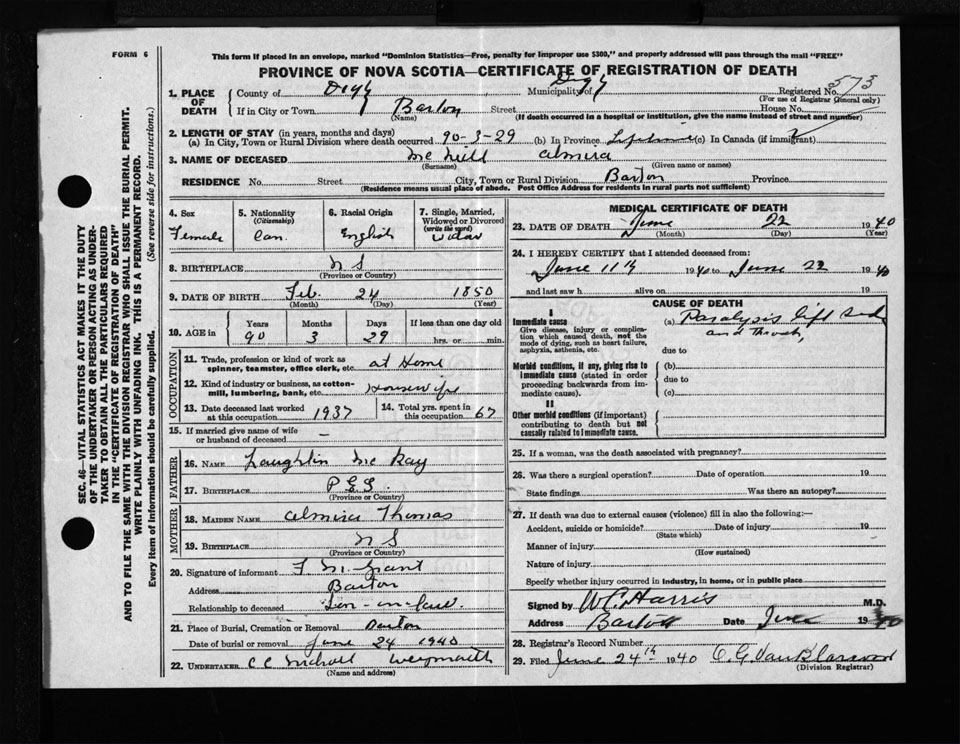 FORM 6
This form if placed in an envelope, marked "Dominion Statistics—Free, penalty for improper use $300," and properly addressed will pass through the mail "FREE"
PROVINCE OF NOVA SCOTIA—CERTIFICATE OF REGISTRATION OF DEATH
1. PLACE OF DEATH County of Digby Municipality of Digby Registered No. 573
(For use of Registrar General only)
If in City or Town Barton Street House No.
(Name) (If death occurred in a hospital or institution, give the name instead of street and number)
2. LENGTH OF STAY (in years, months and days)
(a) In City, Town or Rural Division where death occurred 90-3-29 (b) In Province Lifetime (c) In Canada (if immigrant)
3. NAME OF DECEASED McNeill Almira
(Surname) (Given name or names)
RESIDENCE No. Street City, Town or Rural Division Barton Province
(Residence means usual place of abode. Post Office Address for residents in rural parts not sufficient)
4. Sex Female
5. Nationality (Citizenship) Can.
6. Racial Origin English
7. Single, Married, Widowed or Divorced (write the word) Widow
8. BIRTHPLACE N S
(Province or Country)
9. DATE OF BIRTH Feb. 24 1850
(Month) (Day) (Year)
10. AGE in Years 90 Months 3 Days 29 If less than one day old hrs. or min.
OCCUPATION
11. Trade, profession or kind of work as spinner, teamster, office clerk, etc. at Home
12. Kind of industry or business, as cotton-mill, lumbering, bank, etc. Housewife
13. Date deceased last worked at this occupation 1937
14. Total yrs. spent in this occupation 67
15. If married give name of wife or husband of deceased —
FATHER
16. NAME Laughlin McKay
17. BIRTHPLACE P E I
(Province or Country)
MOTHER
18. MAIDEN NAME Almira Thomas
19. BIRTHPLACE N S
(Province or Country)
20. Signature of informant F M Grant
Address Barton
Relationship to deceased Son-in-law
21. Place of Burial, Cremation or Removal Barton
Date of burial or removal June 24 1940
22. UNDERTAKER C C Weymouth
(Name and address)
MEDICAL CERTIFICATE OF DEATH
23. DATE OF DEATH June 22 1940
(Month) (Day) (Year)
24. I HEREBY CERTIFY that I attended deceased from:
June 11th 1940 to June 22 1940
and last saw h alive on 19
CAUSE OF DEATH
I
Immediate cause
Give disease, injury or complication which caused death, not the mode of dying, such as heart failure, asphyxia, asthenia, etc.
(a) Paralysis left side
and Throat,
due to
Morbid conditions, if any, giving rise to immediate cause (stated in order proceeding backwards from immediate cause)
(b)
due to
(c)
II
Other morbid conditions (if important) contributing to death but not causally related to immediate cause.
25. If a woman, was the death associated with pregnancy?
26. Was there a surgical operation? Date of operation 19
State findings Was there an autopsy?
27. If death was due to external causes (violence) fill in also the following:—
Accident, suicide or homicide? Date of injury 19
(State which)
Manner of injury
(How sustained)
Nature of injury
Specify whether injury occurred in industry, in home, or in public place
Signed by W C Harris M.D.
Address Barton Date June 1940
28. Registrar's Record Number
29. Filed June 24th 1940
(Division Registrar)
SEC. 46—VITAL STATISTICS ACT MAKES IT THE DUTY
OF THE UNDERTAKER OR PERSON ACTING AS UNDER-
TAKER TO OBTAIN ALL THE PARTICULARS REQUIRED
IN THE "CERTIFICATE OF REGISTRATION OF DEATH"
AND TO FILE THE SAME WITH THE DIVISION REGISTRAR WHO SHALL ISSUE THE BURIAL PERMIT.
WRITE PLAINLY WITH UNFADING INK. THIS IS A PERMANENT RECORD.
Every item of information should be carefully supplied. (See reverse side for instructions.)